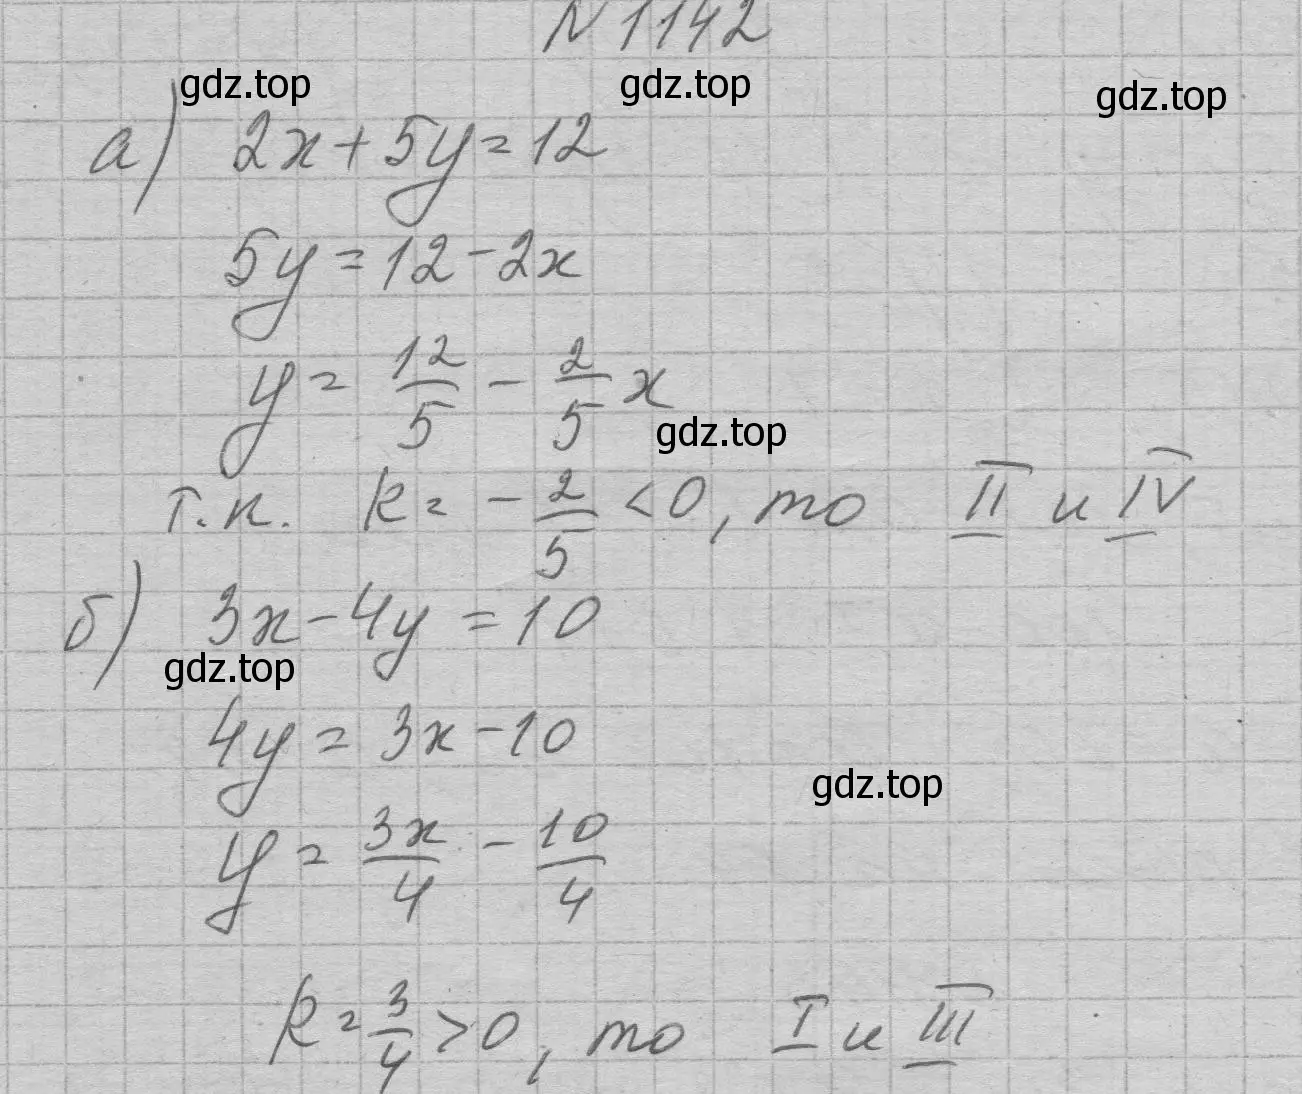 N 1142
gdz.top gdz.top gdz.top
а) 2x + 5y = 12
5y = 12 - 2x
y = 12/5 - 2/5 x
gdz.top
т.к. k = - 2/5 < 0, то II и IV
б) 3x - 4y = 10
gdz.top
4y = 3x - 10
gdz.top
y = 3x/4 - 10/4
k = 3/4 > 0, то I и III